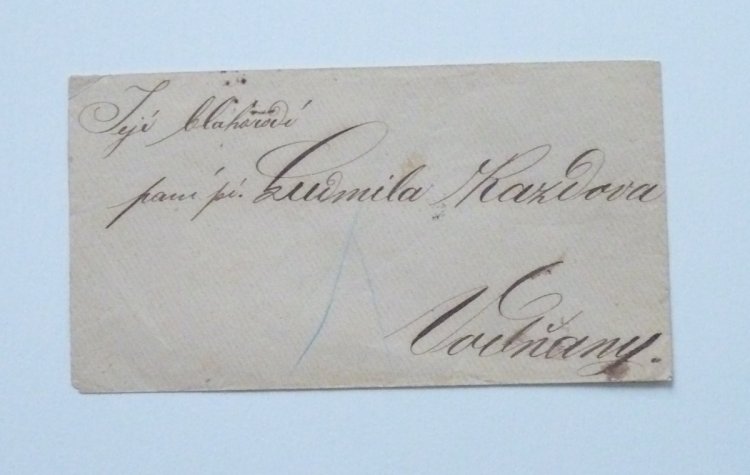 Její blahorodí
paní pí. Ludmila Kazdova
Vodňany.